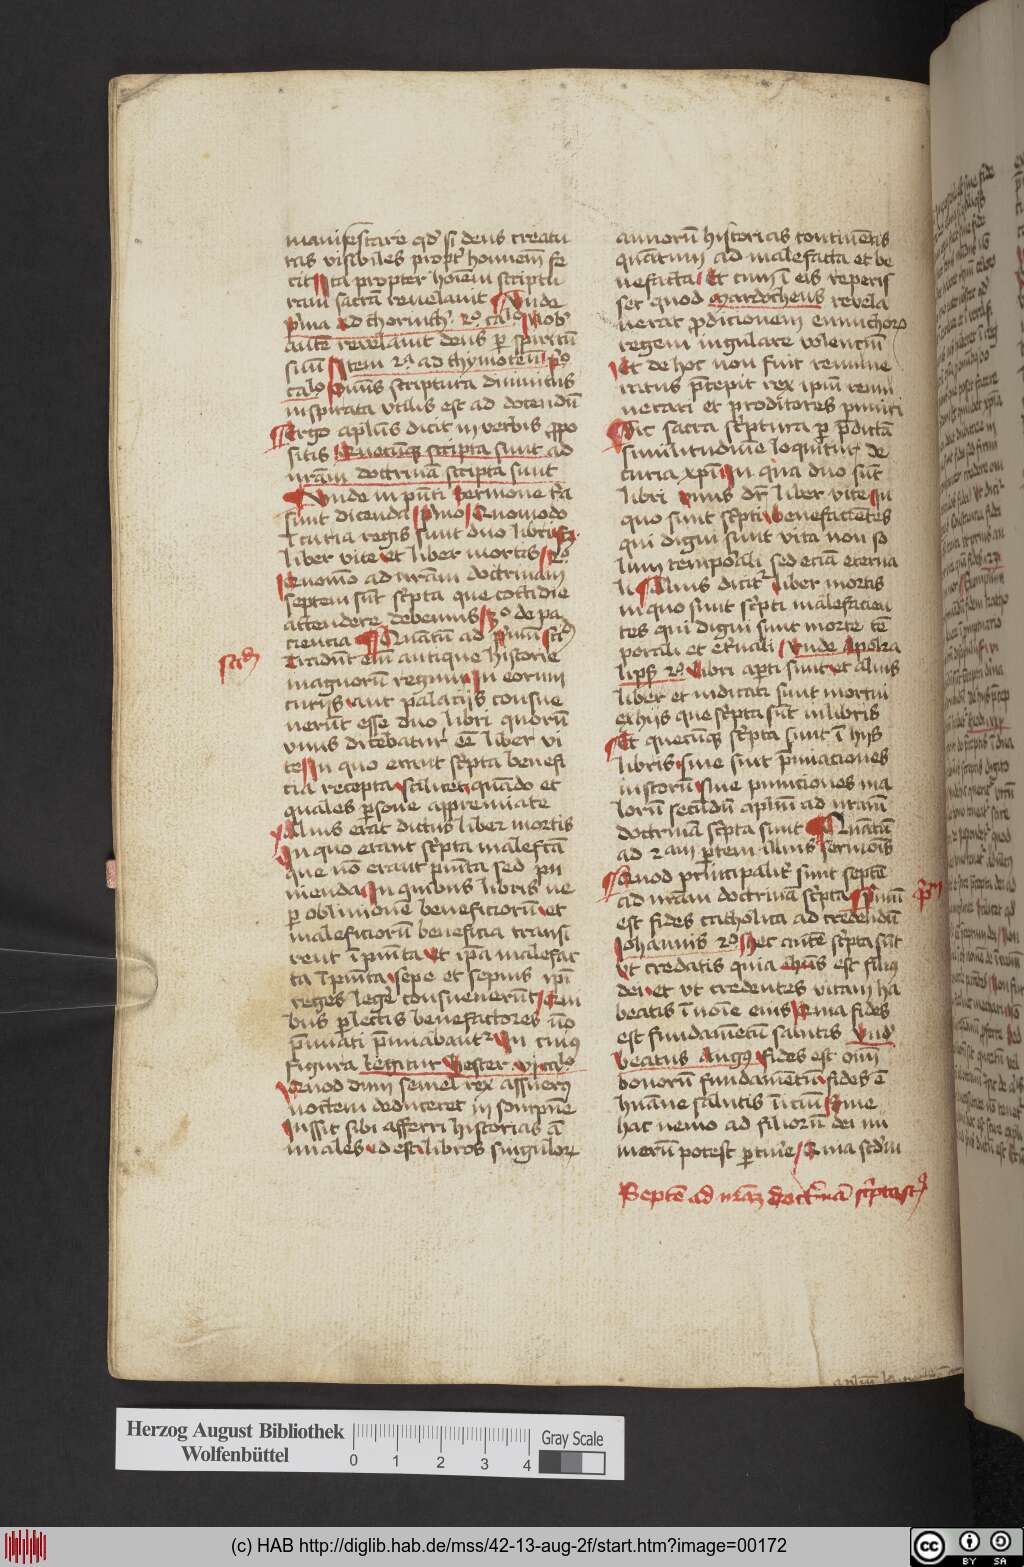 manifestare qd' si deus creatu
ras visibiles propt' hominem fe
cit Ita propter hoīem scriptu
ram sacrā reuelauit Unde
p'ma ad chorinth' 2º ca.lo Nob'
autē reuelauit deus p spiritū
suū Item 2ª ad thymoteū p'º
ca.lo Omīs scriptura diuinitus
inspirata vtilis est ad docendū
Ergo ap̄lus dicit in verbis p̄po
sitis Quecūq scripta sunt ad
nr̄am doctrinā scripta sunt
Unde in p̄nti sermone tr̄a
sunt dicenda p'mo Quomodo
ī curia regis sunt duo libri sc̄z
liber vite et liber mortis 2º
Quomō ad nr̄am doctrinam
septem sūt sc'pta que cottidie
attendere debemus 3º de pa
ciencia Quātū ad p'mū scd'
scd'
Tradūt em̄ antique historie
magnorū regum In eorum
curijs aut palacijs consue
uerūt esse duo libri quorū
vnus dicebatur eē liber vi
te In quo erant sc'pta benefi
cia recepta scilicet quādo et
quales p̄sone appremiate
Alius erāt dictus liber mortis
In quo erant sc'pta malefcā
que nō erant punīta sed pu
nienda In quibus libris ne
p obliuionē beneficiorū et
maleficiorū beneficia transi
rent īp̄mīta Et ip̄a malefac
ta īpunīta sepe et sepius ip̄i
reges legē consueuerūt Qui
bus p̄lectis benefactores nō
p̄miati p̄miabant' In cuius
figura legitur Hester vi ca.lo
Quod dum semel rex assuerus
noctem deduceret in sompnē
iussit sibi afferri historias ā
nuales id est libros singulor
annorū historias continētis
quantum ad malefacta et be
nefacta Et cum ī eis reperis
set quod Mardocheus reuela
uerat p̄dicionem eunuchor
regem iugulare volenciū
Et de hoc non fuit remune
ratus p̄cepit rex ip̄m remu
nerari et proditores puniri
Sic sacra sc'ptura p p̄dictā
similitudinē loquitur de
curia xp̄i In qua duo sūt
libri vnus dr̄ liber vite In
quo sunt sc'pti benefactētes
qui digni sunt vita non so
lum temporali sed eciā eterna
li Alius dicit' liber mortis
in quo sunt sc'pti malefacien
tes qui digni sunt morte tē
porali et et'nali Unde Apoka
lips' 2º Libri ap̄ti sunt et alius
liber et iudicati sunt mortui
ex hijs que sc'pta sūt in libris
Et quecūq sc'pta sunt ī hijs
libris siue sint p̄miaciones
iustorū siue puniciones ma
lorū secūdū ap̄lm ad nr̄am
doctrinā sc'pta sunt Quātū
ad 2 am p̄tem illius sermōis
Quod principalit' sunt septē
ad nr̄am doctrinā sc'pta P'mū
p'm
est fides catholica ad credendū
Johannis 2º Hec autē sc'pta sūt
vt credatis quia ih̄us est filius
dei et vt credentes vitam ha
beatis ī noīe eius P'ma fides
est fundamētū salutis Und'
beatus Augus' fides est om̄i
bonorū fundamētū fides ē
humāne salutis īiciū Sine
hac nemo ad filiorū dei nu
merū potest p̄tin'e Quia scd'm
Septē ad nr̄az doct'nā sc'pta st'
Herzog August Bibliothek
Wolfenbüttel
0 1 2 3 4
Gray Scale
(c) HAB http://diglib.hab.de/mss/42-13-aug-2f/start.htm?image=00172
cc BY SA